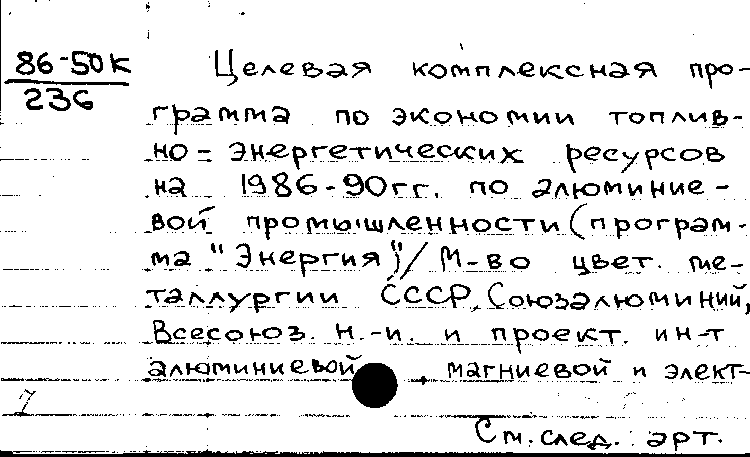 86-50к
236
Целевая комплексная про-
грамма по экономии топлив-
но-энергетических ресурсов
на 1986-90гг. по алюминие-
вой промышленности (програм-
ма "Энергия")/ М-во цвет. ме-
таллургии СССР, Союзалюминий,
Всесоюз. н.-и. и проект. ин-т
алюминиевой, магниевой и элект-
7
См. след. арт.